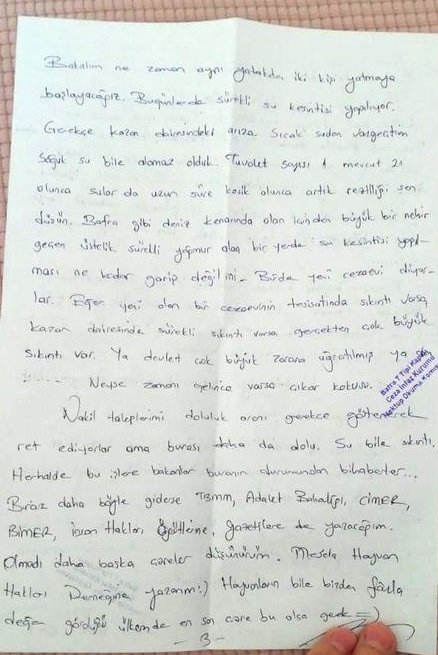 Bakalım ne zaman aynı yatakta iki kişi yatmaya
başlayacağız. Bugünlerde sürekli su kesintisi yapılıyor.
Gerekçe kazan dairesindeki arıza. Sıcak sudan vazgeçtim
soğuk su bile alamaz olduk. Tuvalet sayısı 1 mevcut 21
olunca sular da uzun süre kesik olunca artık rezilliği sen
düşün. Bafra gibi deniz kenarında olan içinden büyük bir nehir
geçen üstelik sürekli yağmur alan bir yerde su kesintisi yapıl-
ması ne kadar garip değil mi. Birde yeni cezaevi diyor-
lar. Eğer yeni olan bir cezaevinin tesisatında sıkıntı varsa,
kazan dairesinde sürekli sıkıntı varsa gerçekten çok büyük
sıkıntı var. Ya devlet çok büyük zarara uğratılmış ya
Neyse zamanı gelince varsa çıkar kokusu.
Bafra T Tipi Kapalı
Ceza İnfaz Kurumu
Mektup Okuma Komis
Nakil taleplerimi doluluk oranı gerekçe göstererek
ret ediyorlar ama burası daha da dolu. Su bile sıkıntı.
Herhalde bu işlere bakanlar buranın durumundan bihaberler...
Biraz daha böyle giderse TBMM, Adalet Bakanlığı, CİMER,
BİMER, İnsan Hakları Örgütlerine, gazetelere de yazacağım.
Olmadı daha başka çareler düşünürüm. Mesela Hayvan
Hakları Derneğine yazarım:) Hayvanların bile bizden fazla
değer gördüğü ülkemde en son çare bu olsa gerek =)
- 3 -